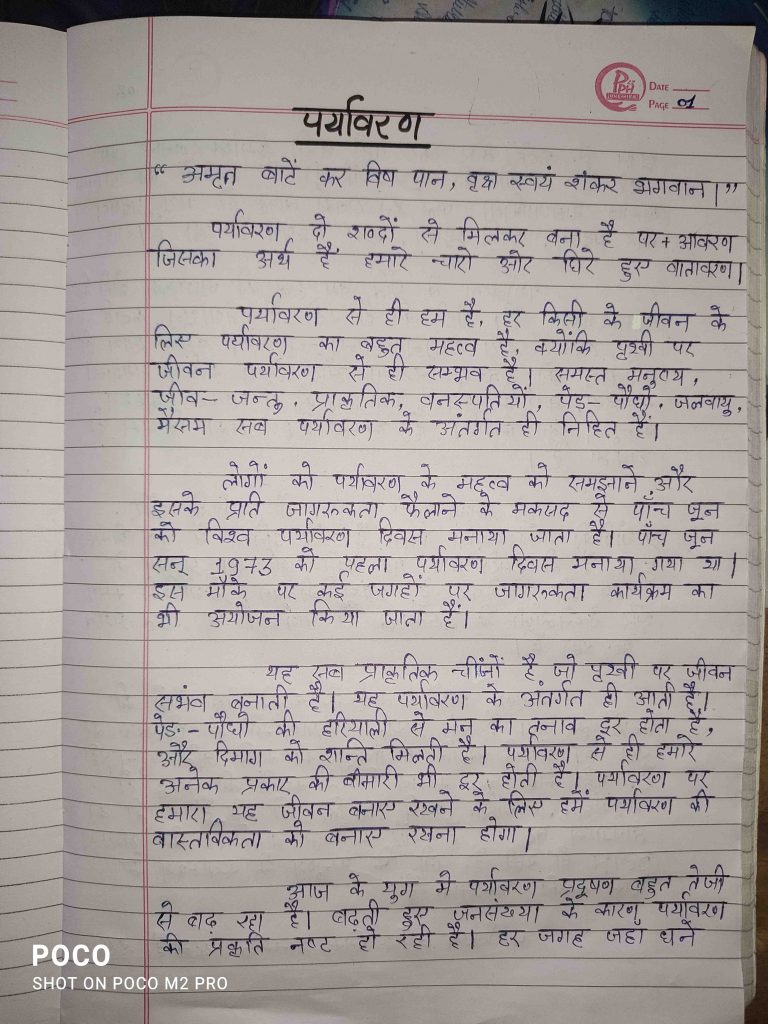 DATE
PAGE 01
पर्यावरण
“ अमृत बाटें कर विष पान, वृक्ष स्वयं शंकर भगवान।”
पर्यावरण दो शब्दों से मिलकर बना है पर+आवरण
जिसका अर्थ है हमारे चारो ओर घिरे हुए वातावरण।
पर्यावरण से ही हम है, हर किसी के जीवन के
लिए पर्यावरण का बहुत महत्व है, क्योंकि पृथ्वी पर
जीवन पर्यावरण से ही सम्भव है। समस्त मनुष्य,
जीव- जन्तु, प्राकृतिक, वनस्पतियों, पेड- पौधो, जलवायु,
मैसम सब पर्यावरण के अंतर्गत ही निहित हैं।
लोगों को पर्यावरण के महत्व को समझाने और
इसके प्रति जागरुकता फैलाने के मकसद से पाँच जून
को विश्व पर्यावरण दिवस मनाया जाता है। पाँच जून
सन् 1973 को पहला पर्यावरण दिवस मनाया गया था।
इस मौके पर कई जगहों पर जागरुकता कार्यक्रम का
भी अयोजन किया जाता है।
यह सब प्राकृतिक चींजों है जो पृथ्वी पर जीवन
सभंव बनाती है। यह पर्यावरण के अंतर्गत ही आती है।
पेड- पौधो की हरियाली से मन का तनाव दूर होता है,
और दिमाग को शान्ति मिलती है। पर्यावरण से ही हमारे
अनेक प्रकार की बीमारी भी दूर होती है। पर्यावरण पर
हमारा यह जीवन बनाए रखने के लिए हमें पर्यावरण की
वास्तविकता को बनाए रखना होगा।
आज के युग मे पर्यावरण प्रदूषण बहुत तेजी
से बाढ़ रहा है। बढ़ती हुए जनसंख्या के कारण पर्यावरण
की प्रकृति नष्ट हो रही है। हर जगह जहाँ घने
POCO
SHOT ON POCO M2 PRO